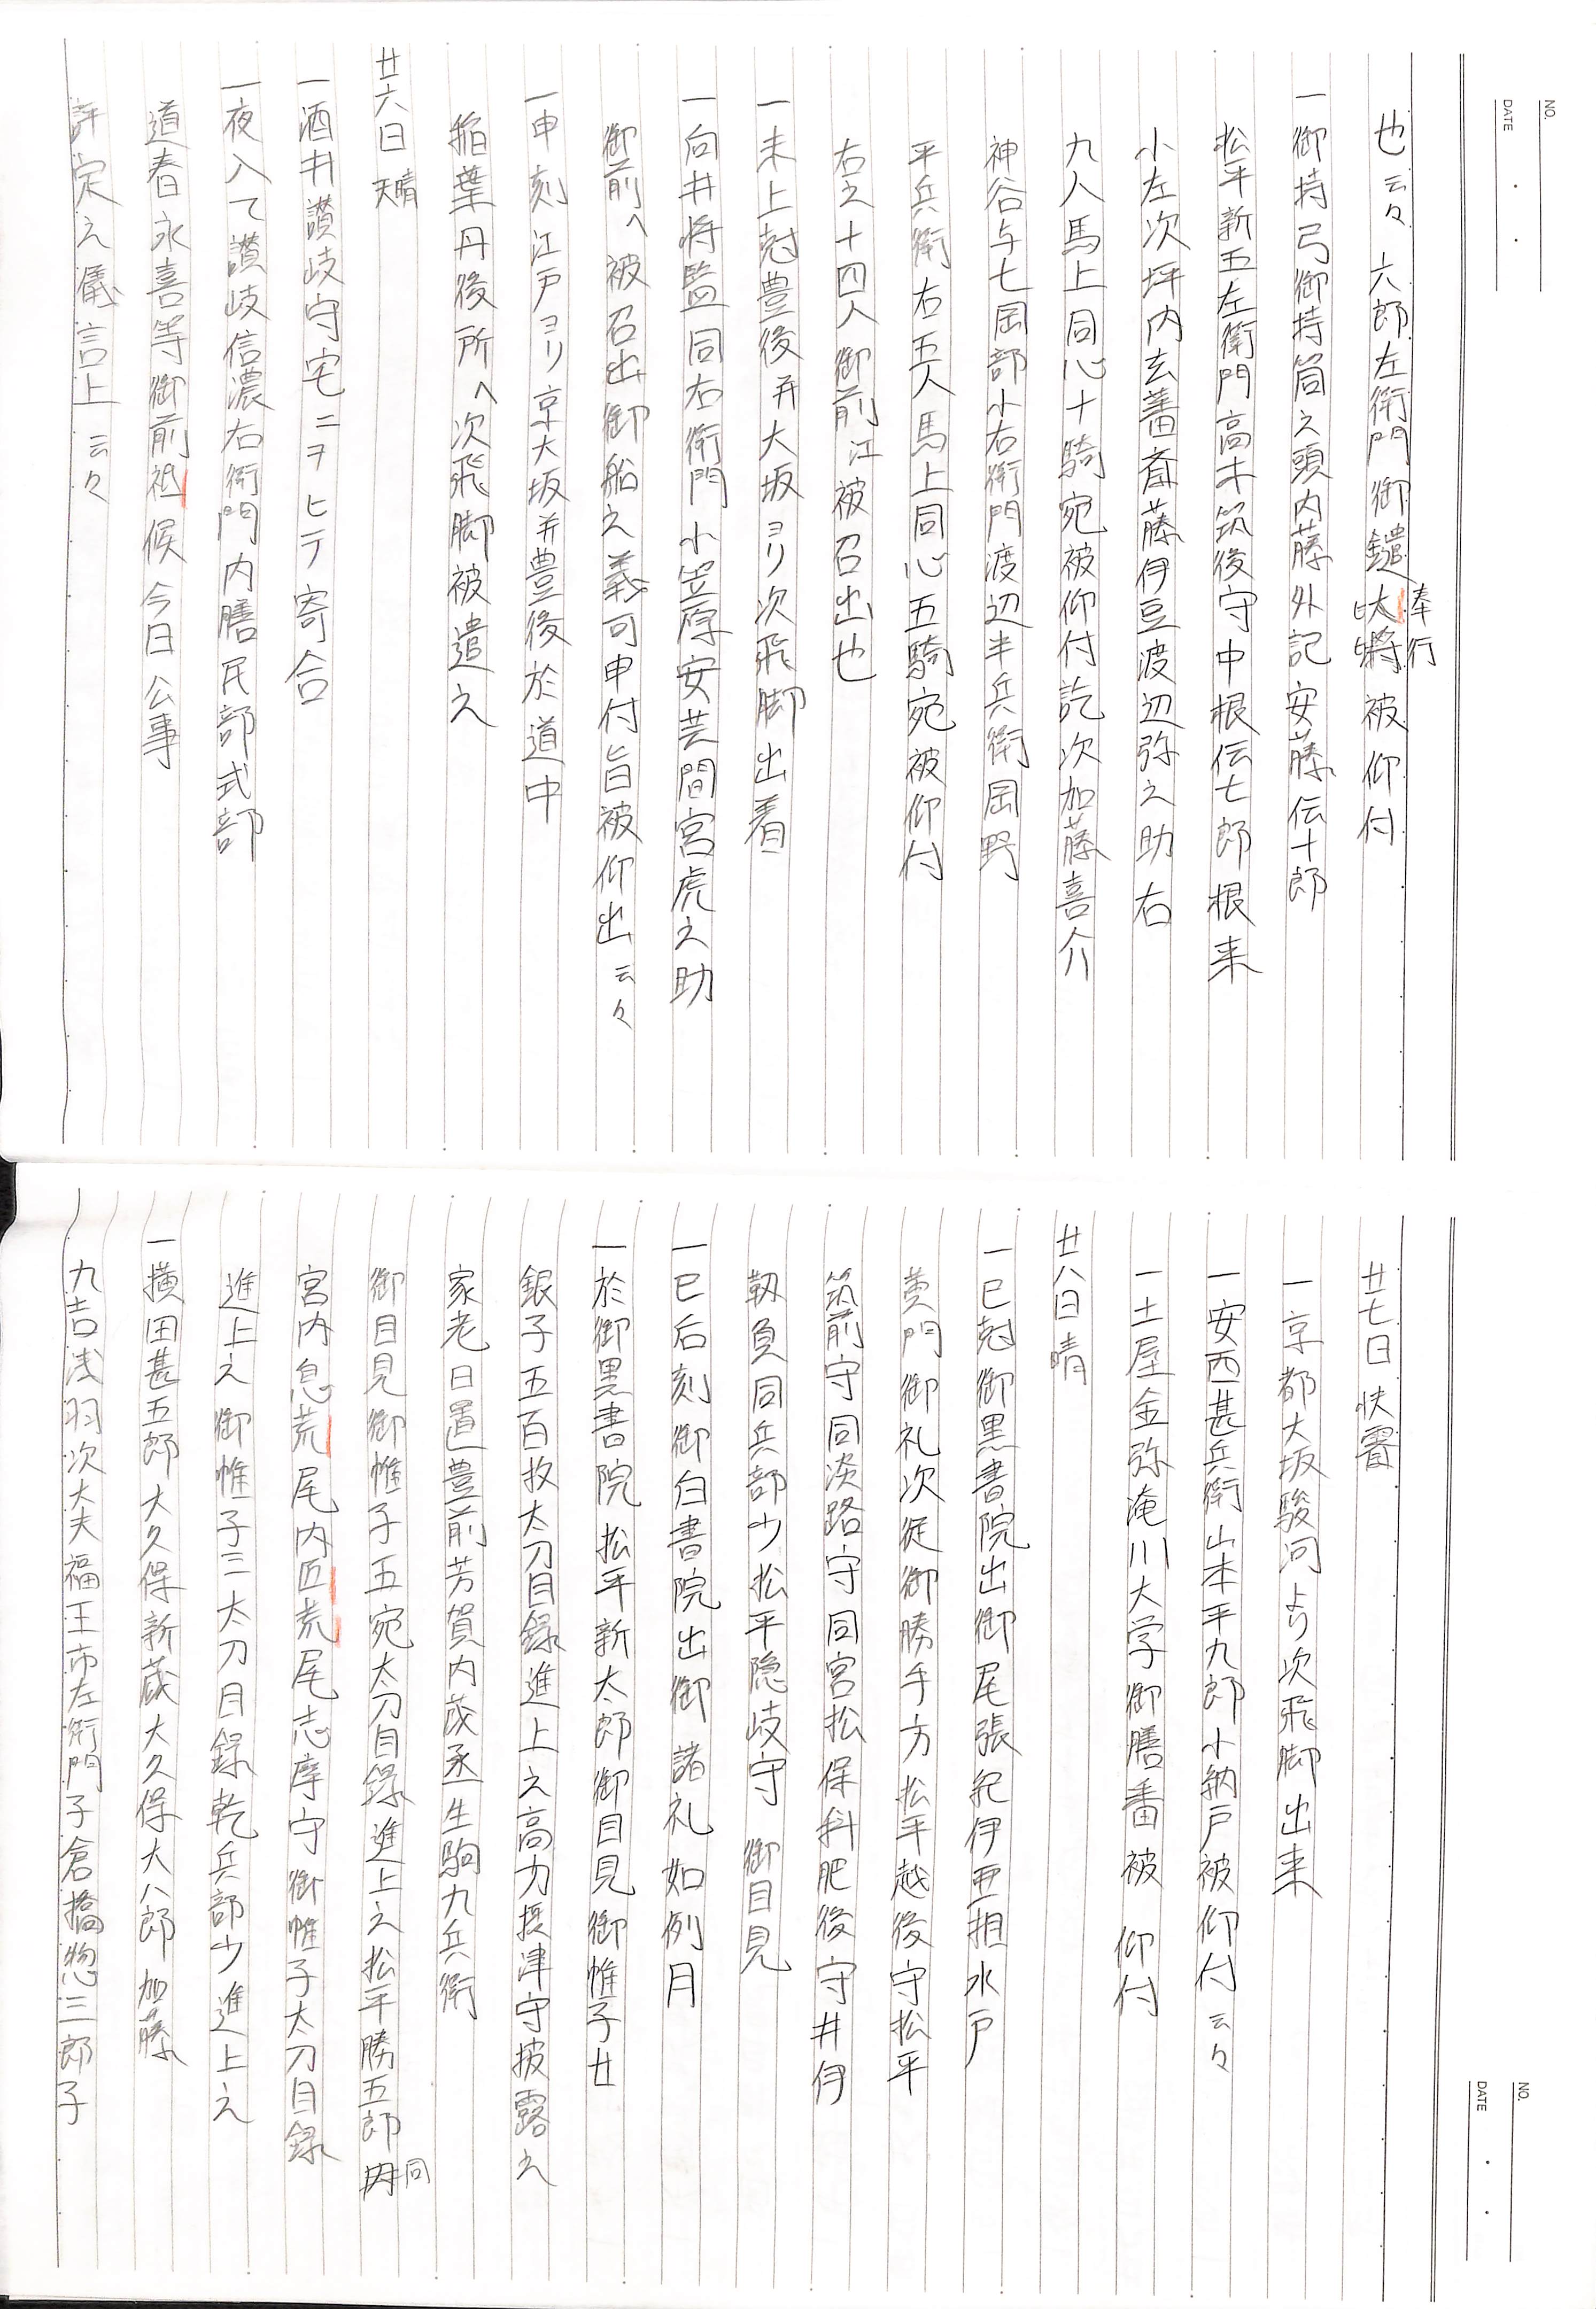 NO.
DATE
也云々六郎左衛門御鑓大将被仰付
奉行
一御持弓御持筒之頭内藤外記安藤伝十郎
松平新五左衛門高木筑後守中根伝七郎根来
小左次坪内玄蕃斎藤伊豆渡辺弥之助右
九人馬上同心十騎宛被仰付訖次加藤喜介
神谷与七岡部小右衛門渡辺半兵衛岡野
平兵衛右五人馬上同心五騎宛被仰付
右之十四人御前江被召出也
一未上尅豊後并大坂ヨリ次飛脚出着
一向井将監同右衛門小笠原安芸間宮虎之助
御前へ被召出御船之義可申付旨被仰出云々
一申刻江戸ヨリ京大坂并豊後於道中
稲葉丹後所へ次飛脚被遣之
廿六日 天晴
一酒井讃岐守宅ニヲヒテ寄合
一夜入て讃岐信濃右衛門内膳民部式部
道春永喜等御前祗候今日公事
評定之儀言上云々
NO.
DATE
廿七日 快霽
一京都大坂駿河より次飛脚出来
一安西甚兵衛山本平九郎小納戸被仰付云々
一土屋金弥滝川大学御膳番被 仰付
廿八日 晴
一巳尅御黒書院出御尾張紀伊亜相水戸
黄門御礼次従御勝手方松平越後守松平
筑前守同淡路守同宮松保科肥後守井伊
靱負同兵部少松平隠岐守 御目見
一巳后刻御白書院出御諸礼如例月
一於御黒書院松平新太郎御目見御帷子廿
銀子五百枚太刀目録進上之高力摂津守披露之
家老日置豊前芳賀内蔵丞生駒九兵衛
御目見御帷子五宛太刀目録進上之松平勝五郎内
同
宮内息荒尾内匠荒尾志摩守御帷子太刀目録
進上之御帷子三太刀目録乾兵部少進上之
一横田甚五郎大久保新蔵大久保大八郎加藤
九吉浅羽次大夫福王市左衛門子倉橋惣三郎子